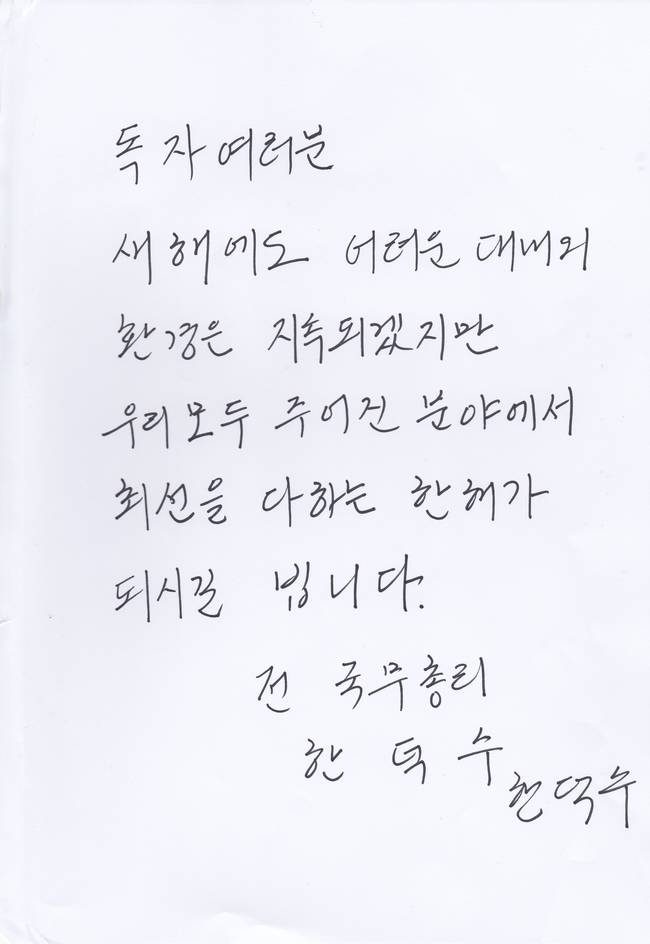 독자여러분
새해에도 어려운 대내외
환경은 지속되겠지만
우리모두 주어진 분야에서
최선을 다하는 한해가
되시길 빕니다.
전 국무총리
한 덕 수
한덕수